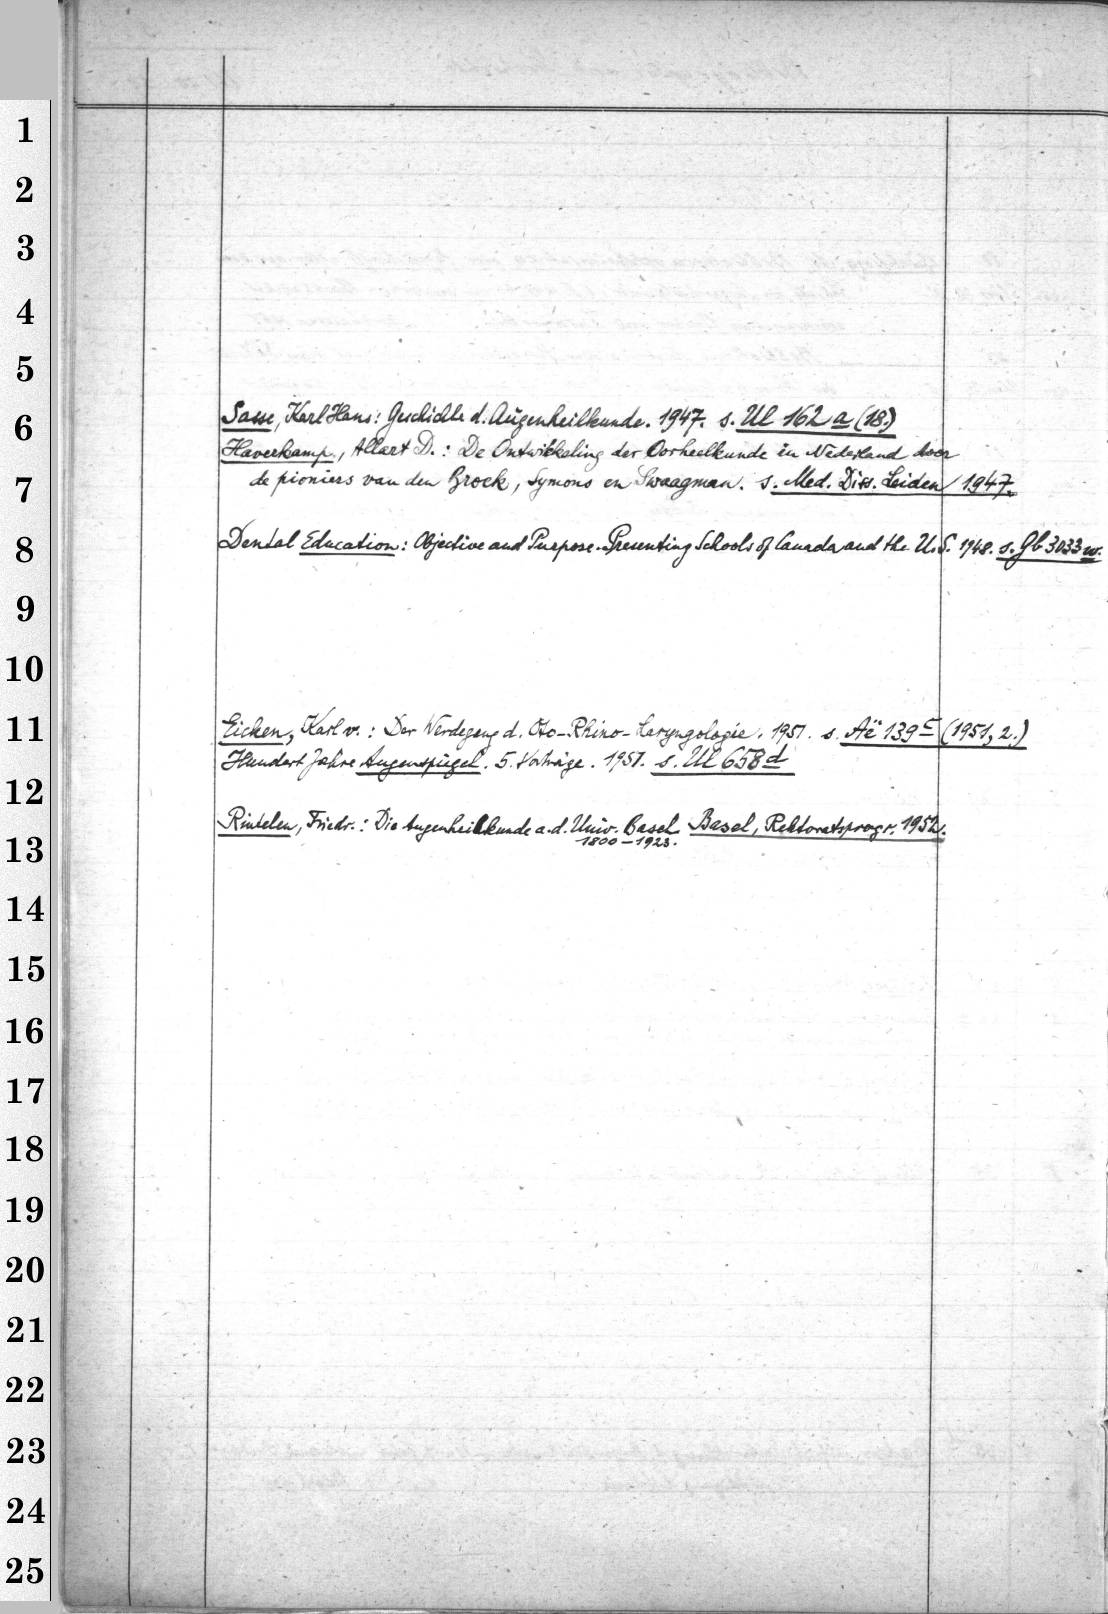 1
2
3
4
5
6
7
8
9
10
11
12
13
14
15
16
17
18
19
20
21
22
23
24
25
Sasse, Karl Hans: Geschichte d. Augenheilkunde. 1947. s. Ul 162 a (18.)
Haverkamp, Allart D.: De Ontwikkeling der Oorheelkunde in Nederland door
de pioniers van den Broek, Symons en Swaagman. s. Med. Diss. Leiden 1947.
Dental Education: Objective and Purpose. Presenting Schools of Canada and the U.S. 1948. s. Gb 3033 w.
Eicken, Karl v.: Der Werdegang d. Oto-Rhino-Laryngologie. 1951. s. Aë 139 c (1951, 2.)
Hundert Jahre Augenspiegel. 5 Vorträge. 1951. s. Ul 658 d
Rintelen, Friedr.: Die Augenheilkunde a. d. Univ. Basel Basel, Rektoratsprogr. 1952.
1800-1923.